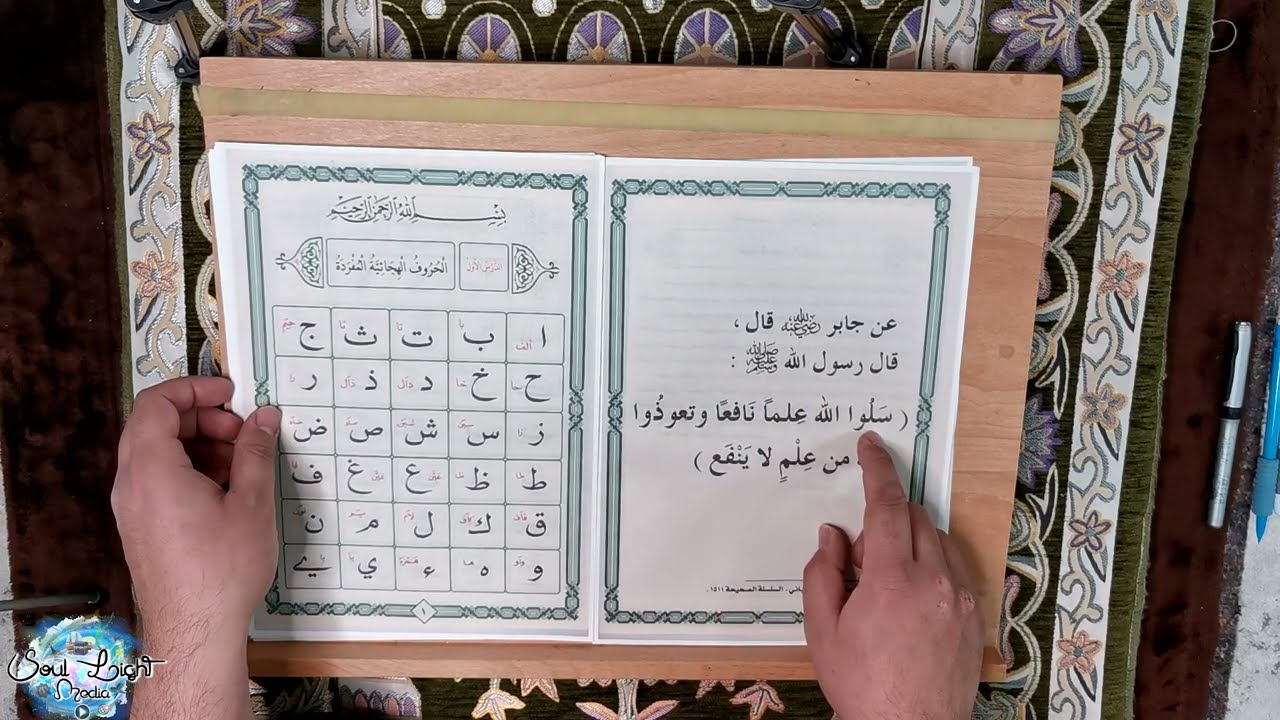 عن جابر رضي الله عنه قال ،
قال رسول الله صلى الله عليه وسلم :
( سَلُوا الله عِلماً نَافعًا وتعوذُوا
من عِلْمٍ لا يَنْفَع )
السلسلة الصحيحة ١٥١١ .
بِسْمِ اللهِ الرَّحْمٰنِ الرَّحِيْمِ
الدَّرْسُ الأوَّل
الْحُرُوفُ الْهِجَائِيَّةُ الْمُفْرَدَةُ
ا ب ت ث ج
ح خ د ذ ر
ز س ش ص ض
ط ظ ع غ ف
ق ك ل م ن
و ه ء ي ے
١
Soul Light
Media